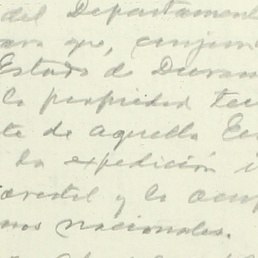 del Departament
para que, conjun
Estado de Duran
la propiedad ter
te de aquella En
la expedición i
orestal y la ocup
nos nacionales.